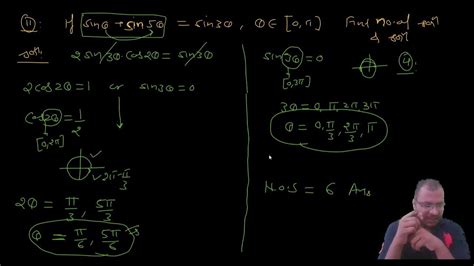 (ii) If sinθ + sin5θ = sin3θ, θ ∈ [0, π] Find no. of solⁿ & solⁿ
Solⁿ 2 sin3θ · cos2θ = sin3θ
2cos2θ = 1 or sin3θ = 0
cos2θ = 1/2
[0, 2π]
2π - π/3
2θ = π/3, 5π/3
θ = π/6, 5π/6
sin3θ = 0
[0, 3π]
4
3θ = 0, π, 2π, 3π
θ = 0, π/3, 2π/3, π
N.O.S = 6 Ans